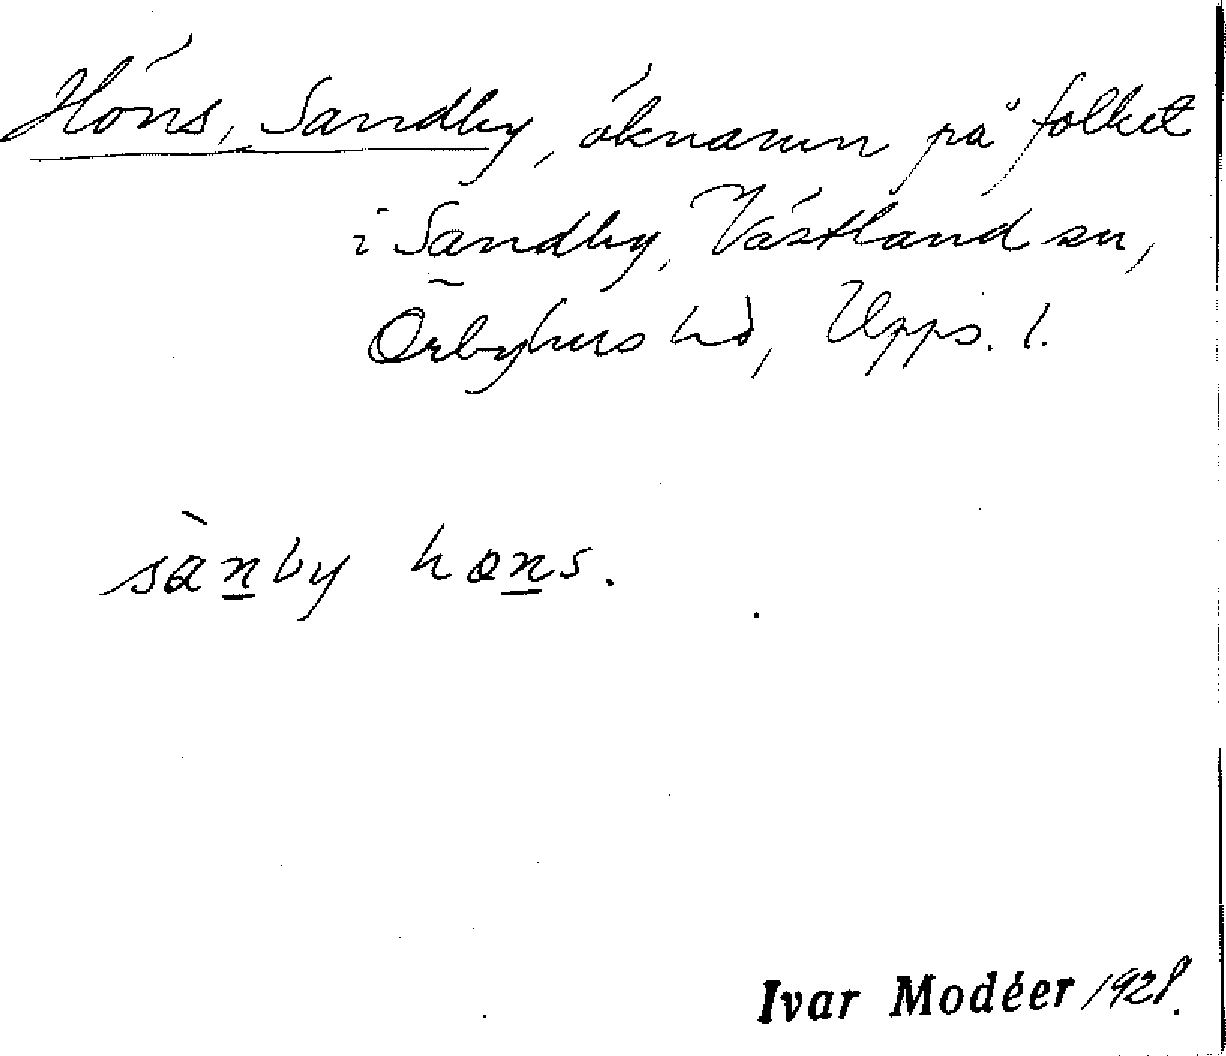 Höns, Sandby, öknamn på folket
i Sandby, Västland sn,
Örbyhus hd, Upps. l.
sànby hꜵns.
Ivar Modéer 1928.